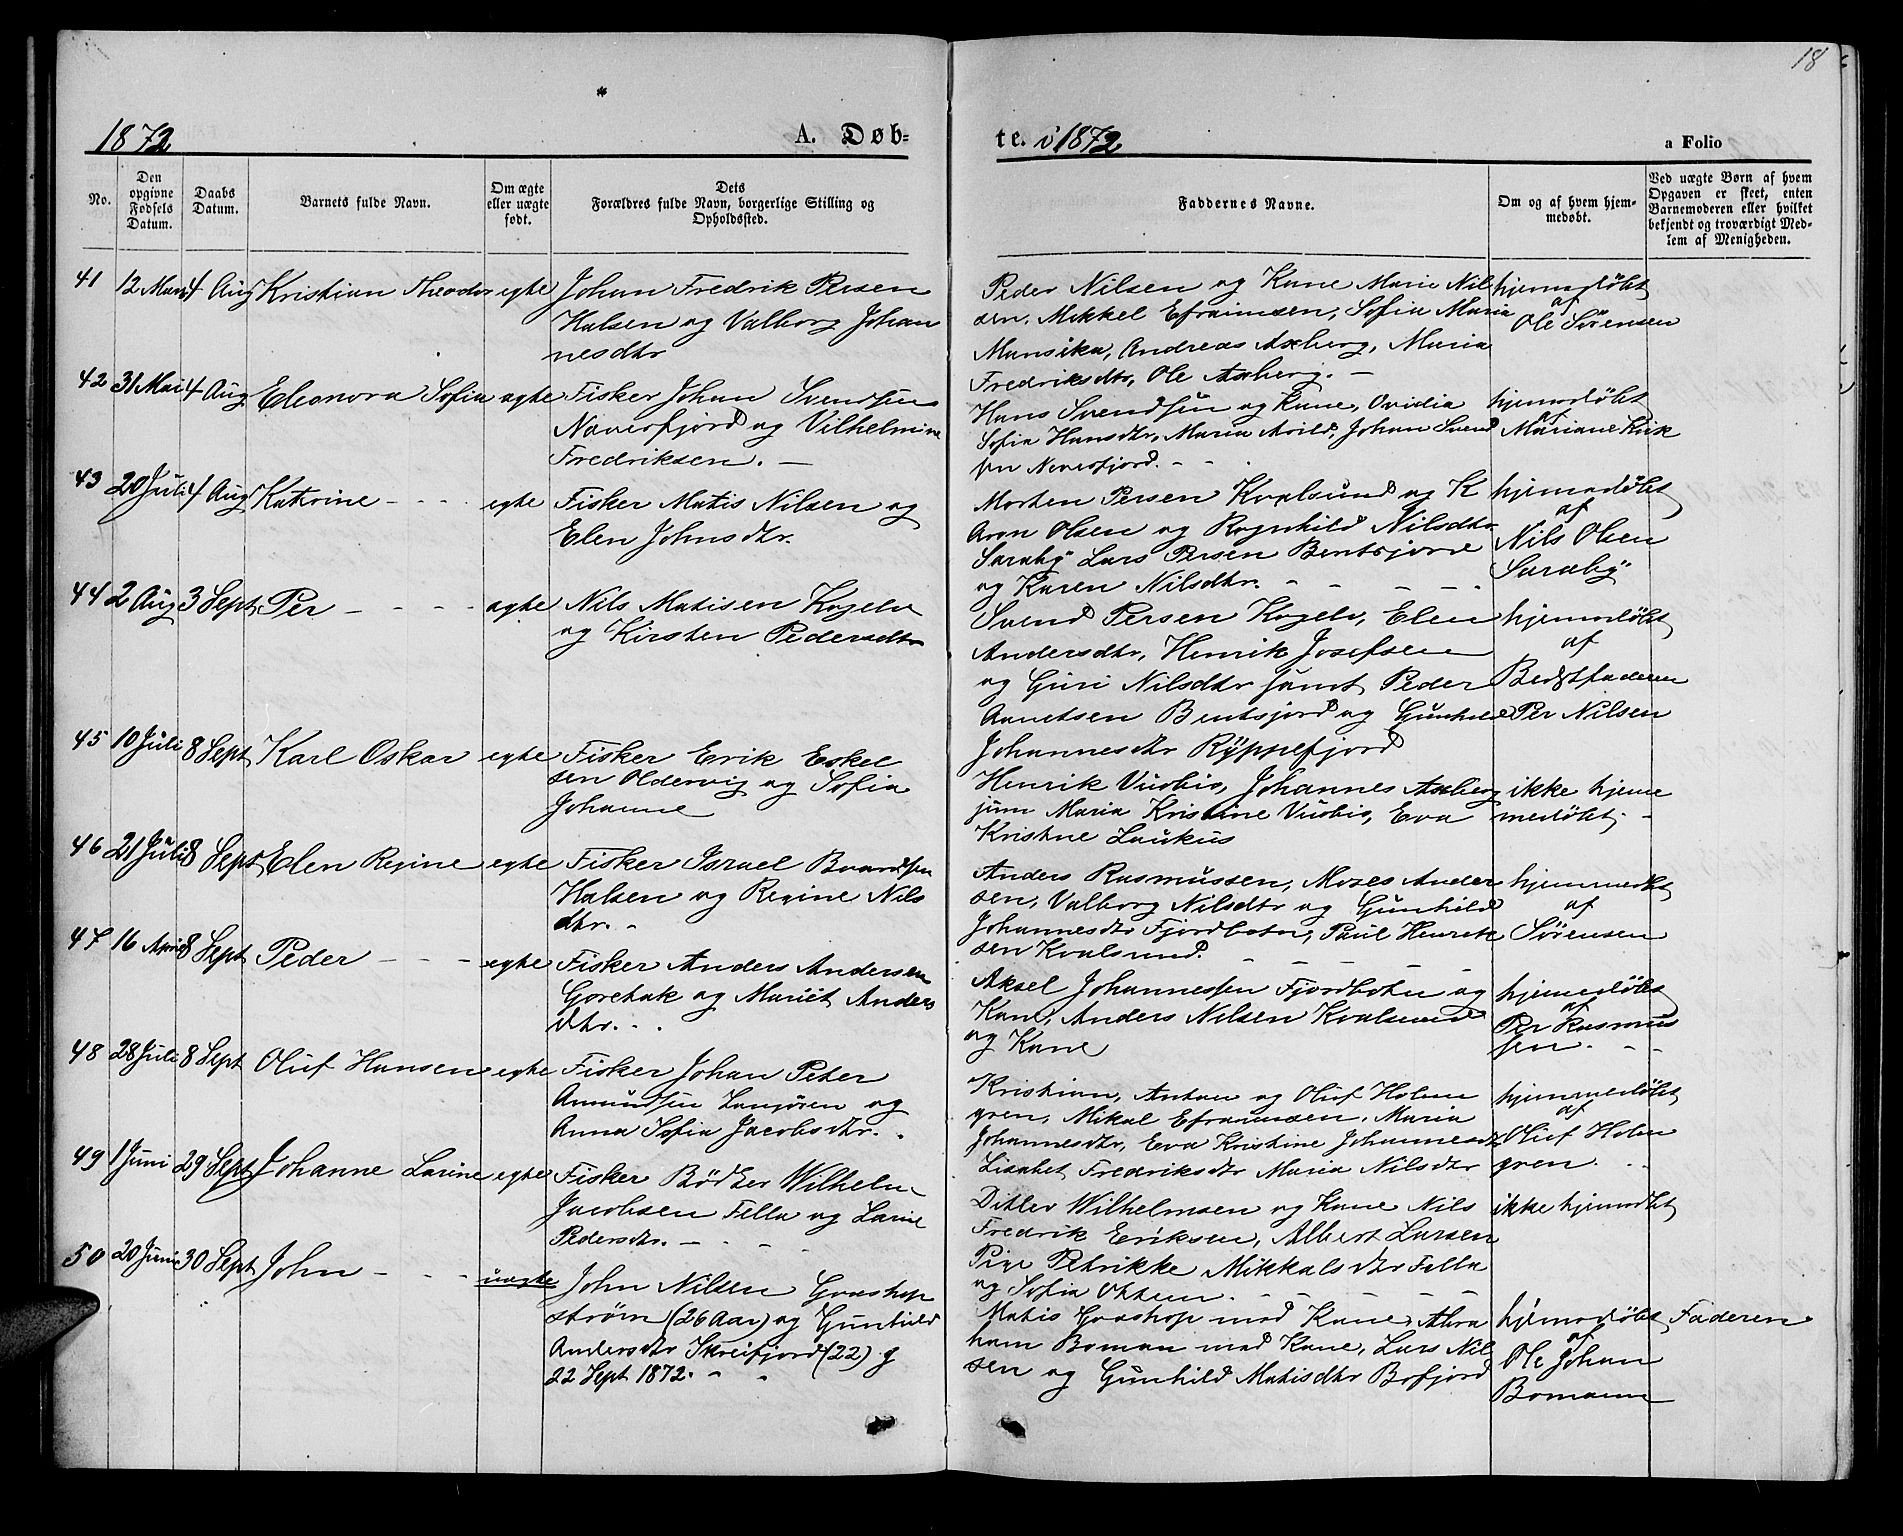 18
1872
A. Døb-
te. i 1872
a Folio
No.
Den
opgivne
Fødsels
Datum.
Daabs
Datum.
Barnets fulde Navn.
Om ægte
eller uægte
født.
Dets
Forældres fulde Navn, borgerlige Stilling og
Opholdssted.
Faddernes Navne.
Om og af hvem hjem-
medøbt.
Ved uægte Børn af hvem
Opgaven er skeet, enten
Barnemoderen eller hvilket
bekjendt og troværdigt Med-
lem af Menigheden.
41 12 Mars 4 Aug Kristian Theodor egte Johan Fredrik Persen
Halsen og Valborg Johan
nesdtr
Peder Nilsen og Kane Marie Nil
sen, Mikkel Efraimsen, Sofia Maria
Mansika, Andreas Aaberg, Maria
Fredriksdtr, Ole Aaberg. -
hjemmedøbt
af
Ole Sørensen
42 31 Mai 4 Aug Eleonora Sofia egte Fisker Johan Svendsen
Naverfjord og Vilhelmine
Fredriksen. -
Hans Svendsen og Kane, Ovidia
Sofia Hansdtr, Maria Arild, Johan Svend
sen Naverfjord. - -
hjemmedøbt
af
Mariane
43 20 Juli 4 Aug Katrine - - - egte Fisker Matis Nilsen og
Elen Johnsdtr.
Morten Persen Kvalsund og K
Aron Olsen og Rognhild Nilsdtr
Saraby Lars Persen Bentsjord
og Karen Nilsdtr. - - - -
hjemmedøbt
af
Nils Olsen
Saraby
44 2 Aug 3 Sept Per - - - - egte Nils Matisen Kogelv
og Kirsten Pedersdtr
Svend Persen Kogelv, Elen
Andersdtr, Henrik Josefsen
og Guri Nilsdtr samt Peder
Bentsjord og Gunhild
Johannesdtr Ryppefjord
hjemmedøbt
af
Bedstfaderen
Per Nilsen
45 10 Juli 8 Sept Karl Oskar egte Fisker Erik Eskel
sen Oldervig og Sofia
Johanne
Henrik Vuobio, Johannes Aaberg
jun Maria Kristine Vuobio, Eva
Kristine Laukus
ikke hjemme
medøbt. -
46 21 Juli 8 Sept Elen Regine egte Fisker Israel
Halsen og Regine Nils
dtr. -
Anders Rasmussen, Moses Ander
sen, Valborg Nilsdtr og Gunhild
Johannesdtr Fjordbotn, Paul Henrik
sen Kvalsund. - - - - -
hjemmedøbt
af
Sørensen
47 16 April 8 Sept Peder - - - egte Fisker Anders Andersen
og Mariet Anders
dtr. - -
Aksel Johannessen Fjordbotn og
Kane, Anders Nilsen Kvalsund
og Kane
hjemmedøbt
af
Per Rasmus
sen. - -
48 28 Juli 8 Sept Oluf Hansen egte Fisker Johan Peter
Amundsen og
Anna Sofia Jacobsdtr. -
Kristian, Anton og Oluf Holm
gren, Mikal Efraimsen, Maria
Johannesdtr, Eva Kristine Johannesdtr
Lisabet Fredriksdtr Maria Nilsdtr
hjemmedøbt
af
Oluf Holm
gren. - -
49 1 Juni 29 Sept Johanne Larine egte Fisker Bödker Wilhelm
Jacobsen Fella og Larine
Pedersdtr. - - - -
Ditlev Wilhelmsen og Kane Nils
Fredrik Eriksen, Albert Larsen
Pige Petrikke Mikkalsdtr Fella
og Sofia Olsen. - - - -
ikke hjemmedøbt
50 20 Juni 30 Sept John - - - uægte John Nilsen Grashop
strøm (26 Aar) og Gunhild
Andersdtr Skreifjord (22) g
22 Sept 1872. - -
Matis Grashop med Kane, Abra
ham Boman med Kane, Lars Nil
sen og Gunhild Matisdtr Bofjord
hjemmedøbt
af
Ole Johan
Bomann
Faderen